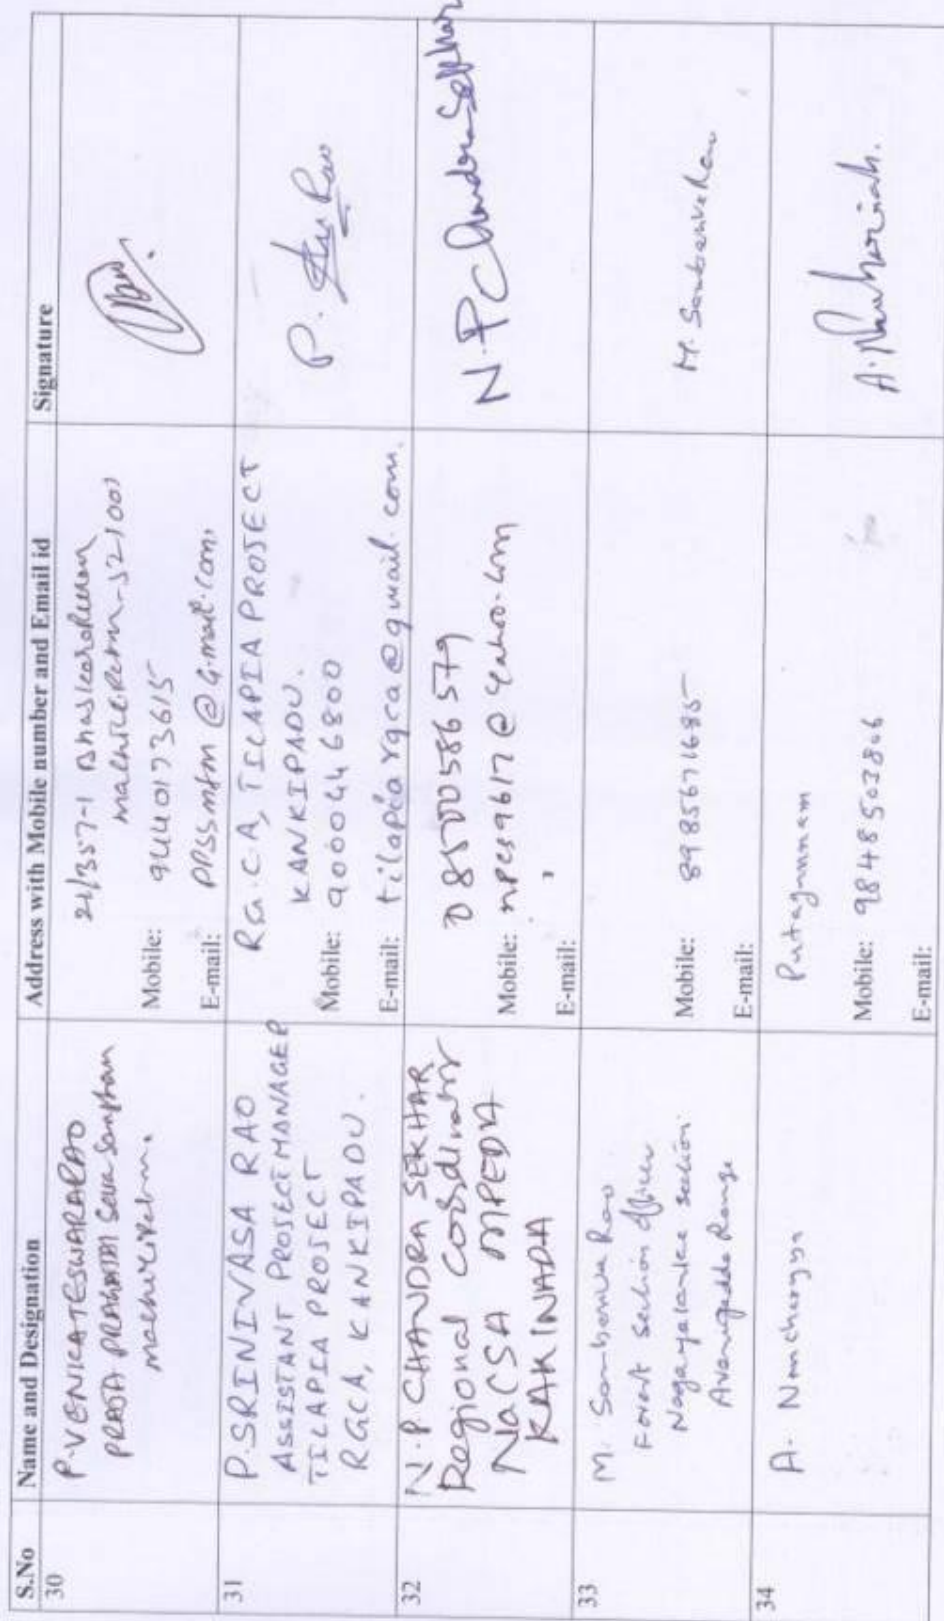 S.No Name and Designation Address with Mobile number and Email id Signature
30
P. VENKATESWARARAO
PRAJA PRAGATHI Seva Sangham
machilipatnam.
21/357-1 Bhaskarapuram
machilipatnam-521001
Mobile: 9440173615
E-mail: PPSSMTM @ G.mail.com,
31
P. SRINIVASA RAO
ASSISTANT PROJECT MANAGER
TILAPIA PROJECT
RGCA, KANKIPADU.
R.G.C.A, TILAPIA PROJECT
KANKIPADU.
Mobile: 9000446800
E-mail: tilapiargca@gmail.com.
P. Rao
32
N.P CHANDRA SEKHAR
Regional Coordinator
NaCSA MPEDA
KAKINADA
08500586579
Mobile: npcs9617@yahoo.com
E-mail:
N.P Chandra Sekhar
33
M. Sambasiva Rao
Forest Section Officer
Nagayalanka Section
Avanigadda Range
Mobile: 8985671685
E-mail:
M. Sambasiva Rao
34
A. Nancharayya
Mobile: 9848503806
E-mail:
A. Nancharaiah.